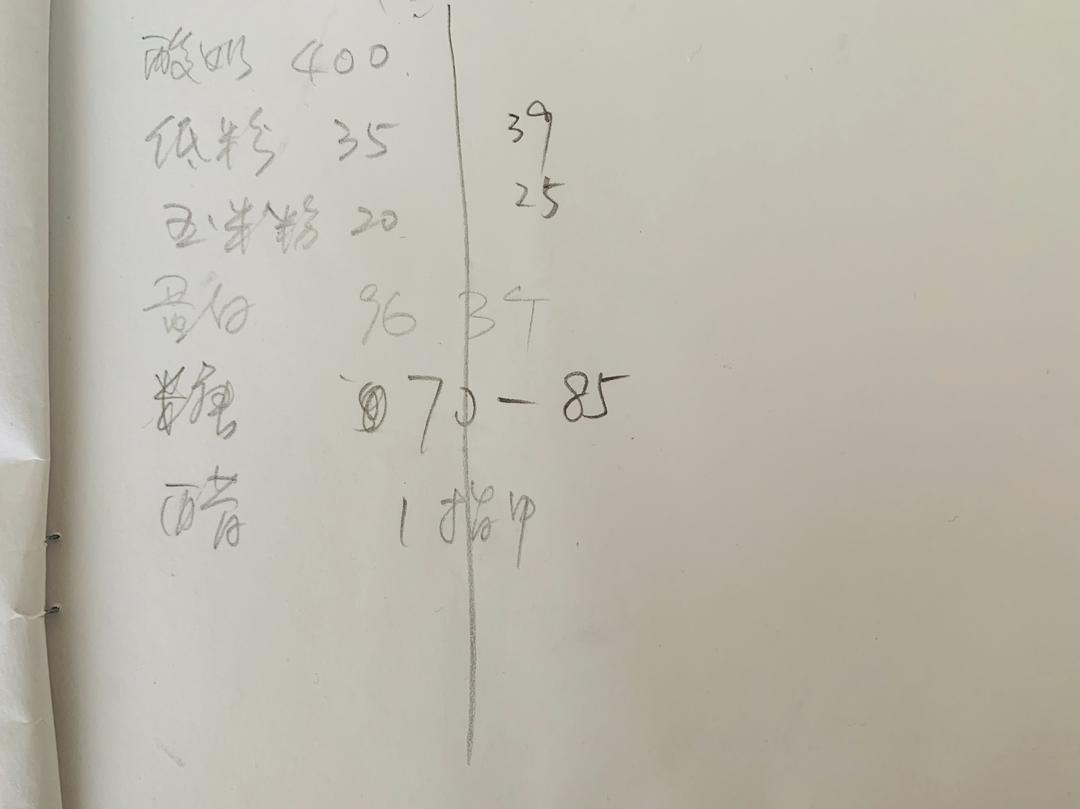 酸奶 400
低粉 35 39
玉米粉 20 25
蛋白 96 3个
糖 70-85
醋 1指甲